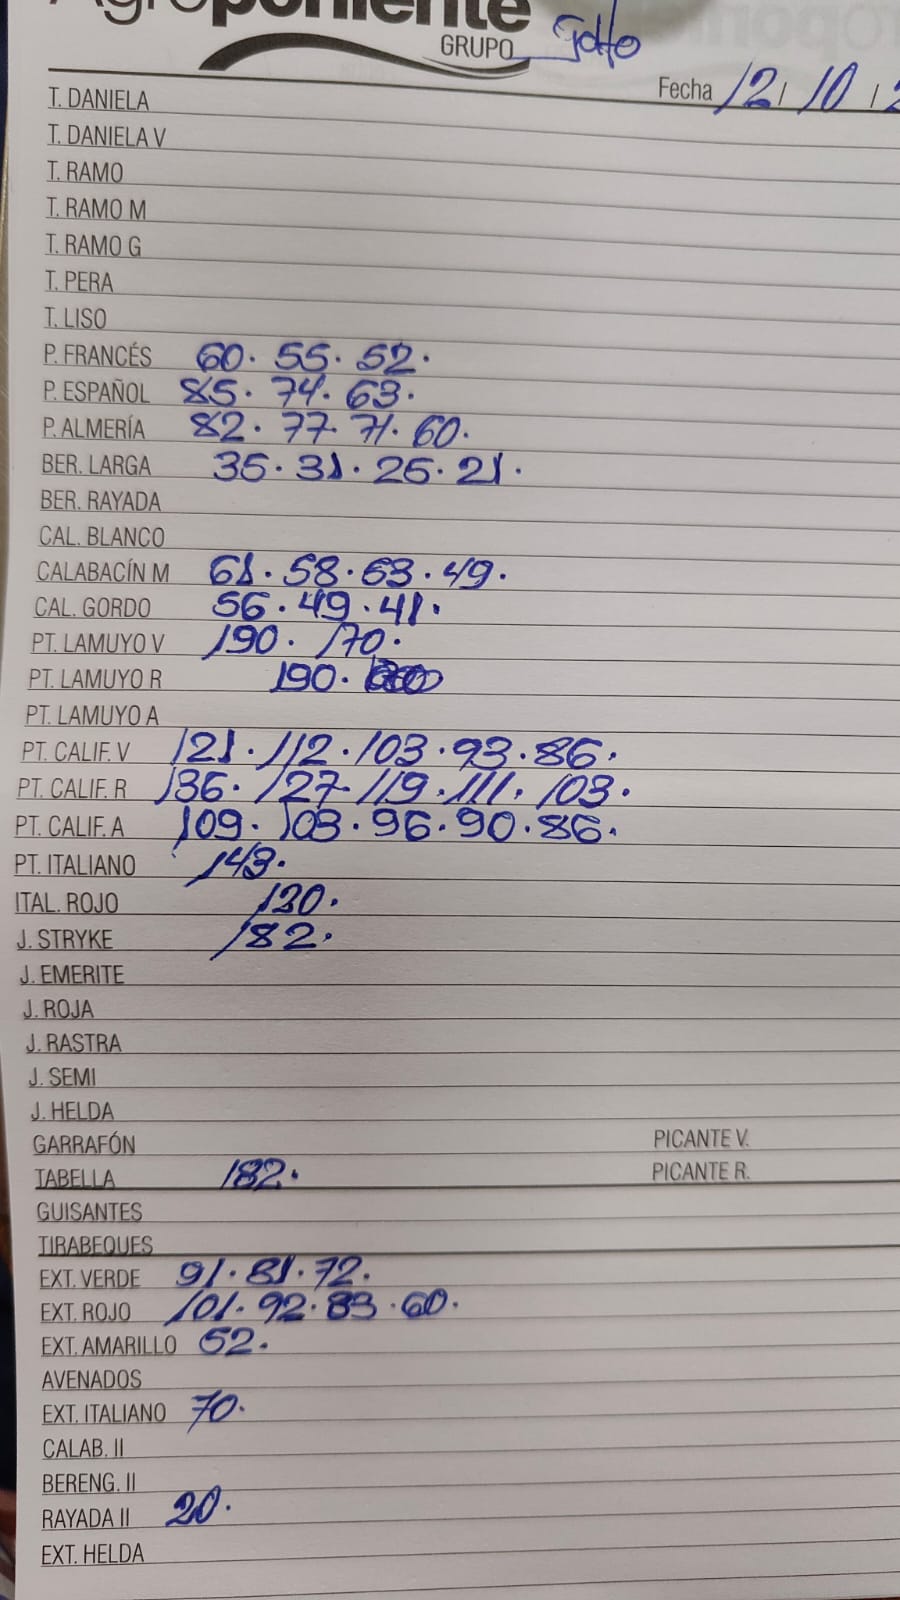 Agroponiente
GRUPO Golfo
Fecha 12 / 10 / 2
T. DANIELA
T. DANIELA V
T. RAMO
T. RAMO M
T. RAMO G
T. PERA
T. LISO
P. FRANCÉS 60. 55. 52.
P. ESPAÑOL 85. 74. 63.
P. ALMERÍA 82. 77. 71. 60.
BER. LARGA 35. 31. 25. 21.
BER. RAYADA
CAL. BLANCO
CALABACÍN M 61. 58. 53. 49.
CAL. GORDO 56. 49. 41.
PT. LAMUYO V 190. 170.
PT. LAMUYO R 190.
PT. LAMUYO A
PT. CALIF. V 121. 112. 103. 93. 86.
PT. CALIF. R 136. 127. 119. 111. 103.
PT. CALIF. A 109. 103. 96. 90. 86.
PT. ITALIANO 143.
ITAL. ROJO 130.
J. STRYKE 182.
J. EMERITE
J. ROJA
J. RASTRA
J. SEMI
J. HELDA
GARRAFÓN PICANTE V.
TABELLA 182. PICANTE R.
GUISANTES
TIRABEQUES
EXT. VERDE 91. 81. 72.
EXT. ROJO 101. 92. 83. 60.
EXT. AMARILLO 52.
AVENADOS
EXT. ITALIANO 70.
CALAB. II
BERENG. II
RAYADA II 20.
EXT. HELDA